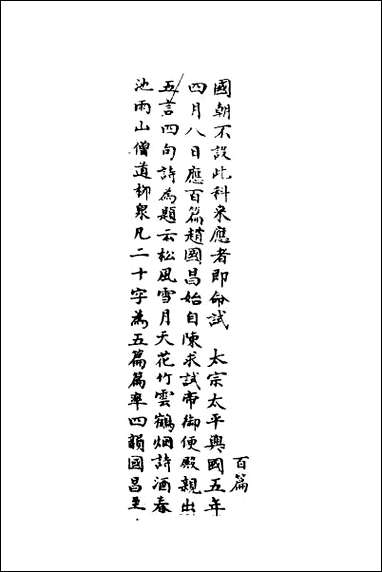 百篇
國朝不設此科來應者即命試 太宗太平興國五年
四月八日應百篇趙國昌始自陳求試帝御便殿親出
五言四句詩為題云松風雪月天花竹雲鶴烟詩酒春
池雨山僧道柳泉凡二十字為五篇篇率四韻國昌至